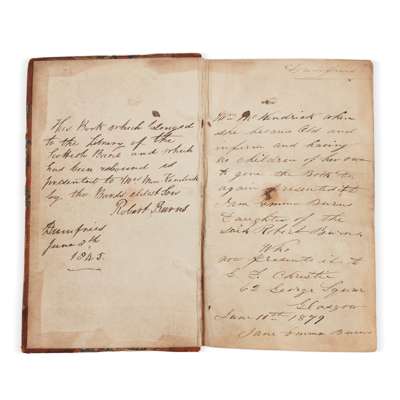 This Book which belonged
to the Library of the
Scottish Bard and which
had been rebound is
presented to Mrs Mc Kendrick
by the Bards eldest Son
Robert Burns
Dumfries
June 9th
1845
Dumfries
Mrs McKendrick when
she became Old and
infirm and having
no children of her own
to give the Book to
again presented it to
Jane Emma Burns
Daughter of the
said Robert Burns
Who
now presents it to
Christie
62 George Square
Glasgow
June 10th 1879
Jane Emma Burns